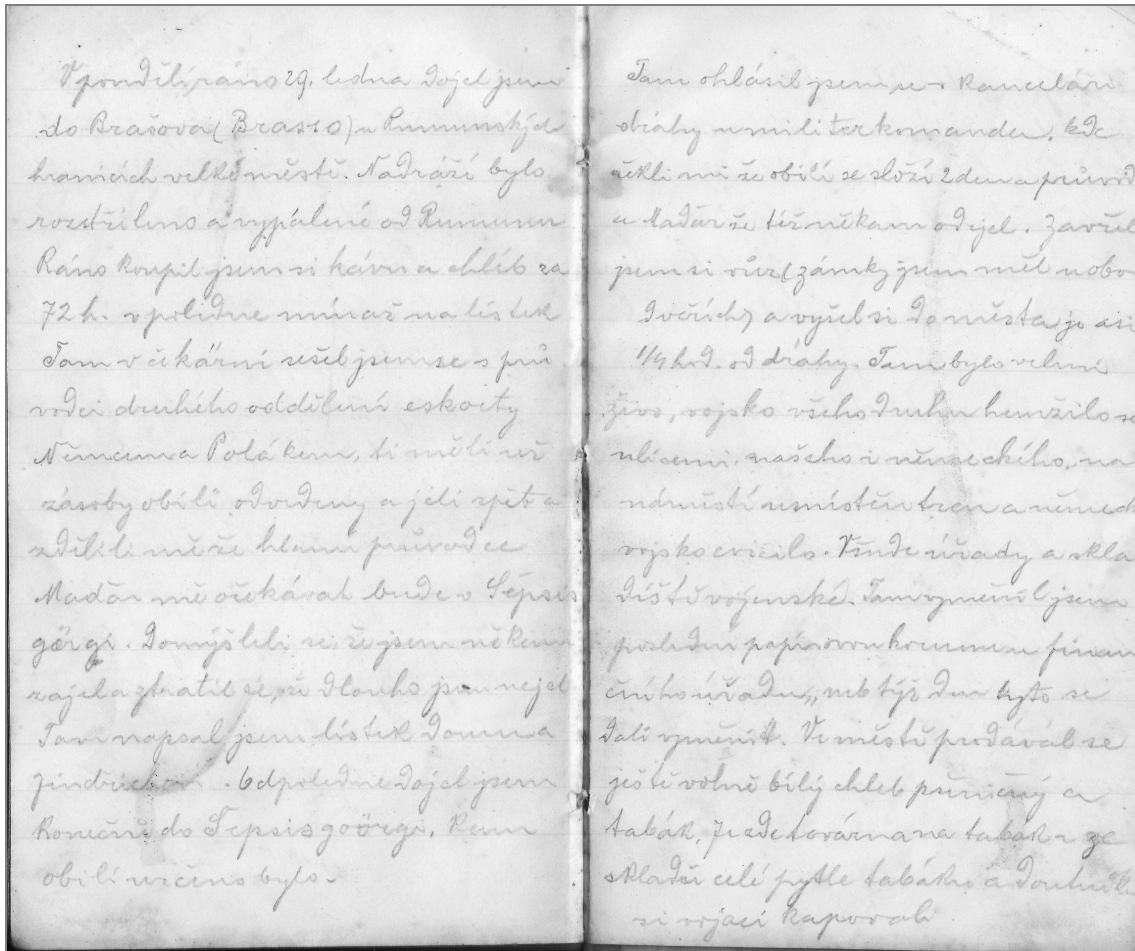 V pondělí ráno 29. ledna dojel jsem
do Brašova (Brasso) u Rumunských
hranicích velké městě. Nádraží bylo
rozstříleno a vypálené od Rumunu
Ráno koupil jsem si kávu a chléb za
72 h. v poledne mínaž na lístek
Tam v čekární sešel jsem se s prů
vodci druhého oddělení eskorty
Němcem a Polákem, ti měli už
zásoby obilí odvedeny a jeli zpět a
zdělili mě že hlavní průvodce
Maďar mě očekávat bude v Sepsis
görgi. Domýšleli se že jsem někam
zajel a ztratil se, že dlouho jsem nejel
Tam napsal jsem lístek domu a
Jindřichovi. Odpoledne dojel jsem
konečně do Sepsisgoörgi, kam
obilí určeno bylo.
Tam ohlásil jsem se v kanceláři
dráhy u militerkomanda, kde
řekli mi že obilí se složí 2 den a průvod
a Maďar že též někam odejel. Zavřel
jsem si vůz (zámky jsem měl u obo
dvěřích) a vyšel si do města je asi
1/4 hod. od dráhy. Tam bylo velmi
živo, vojsko všeho druhu hemžilo se
ulicemi, našeho i německého, na
náměstí umístěn tren a německ
vojsko cvičilo. Všude úřady a skla
diště vojenské. Tam vyměnil jsem
poslední papírovou korunu u finan
čního úřadu, neb týž den tyto se
dali vyměnit. Ve městě prodával se
ještě volně bílý chleb pšeničný a
tabák. Je zde továrna na tabák a ze
skladu celé pytle tabáku a doutníku
si vojáci kupovali.